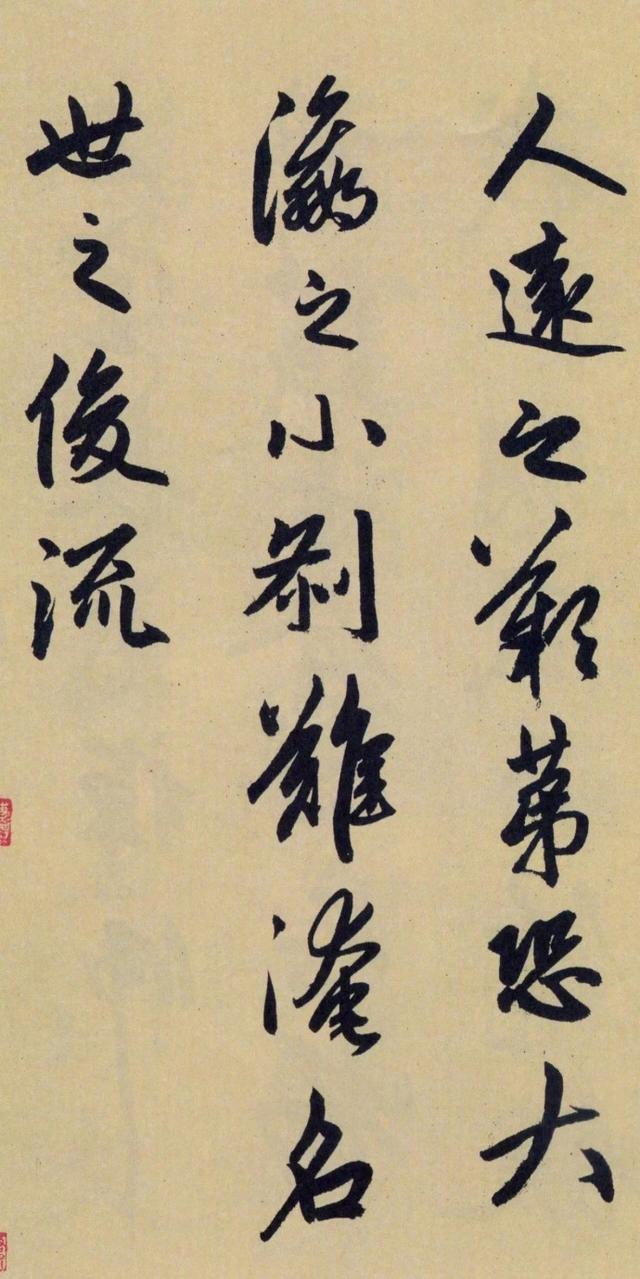 人遠之歎第恐大
瀛之小刹難淹名
世之俊流